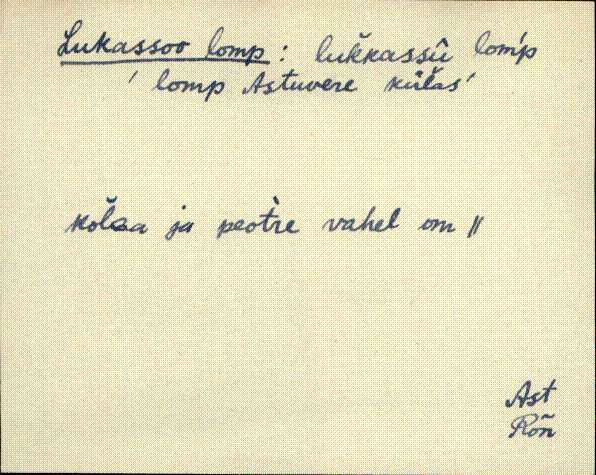 Lukassoo lomp : luk̆kassū̂ lom̀p
' lomp Astuvere külas'
kolga ja peot̀re vahel om //
Ast
Rõn